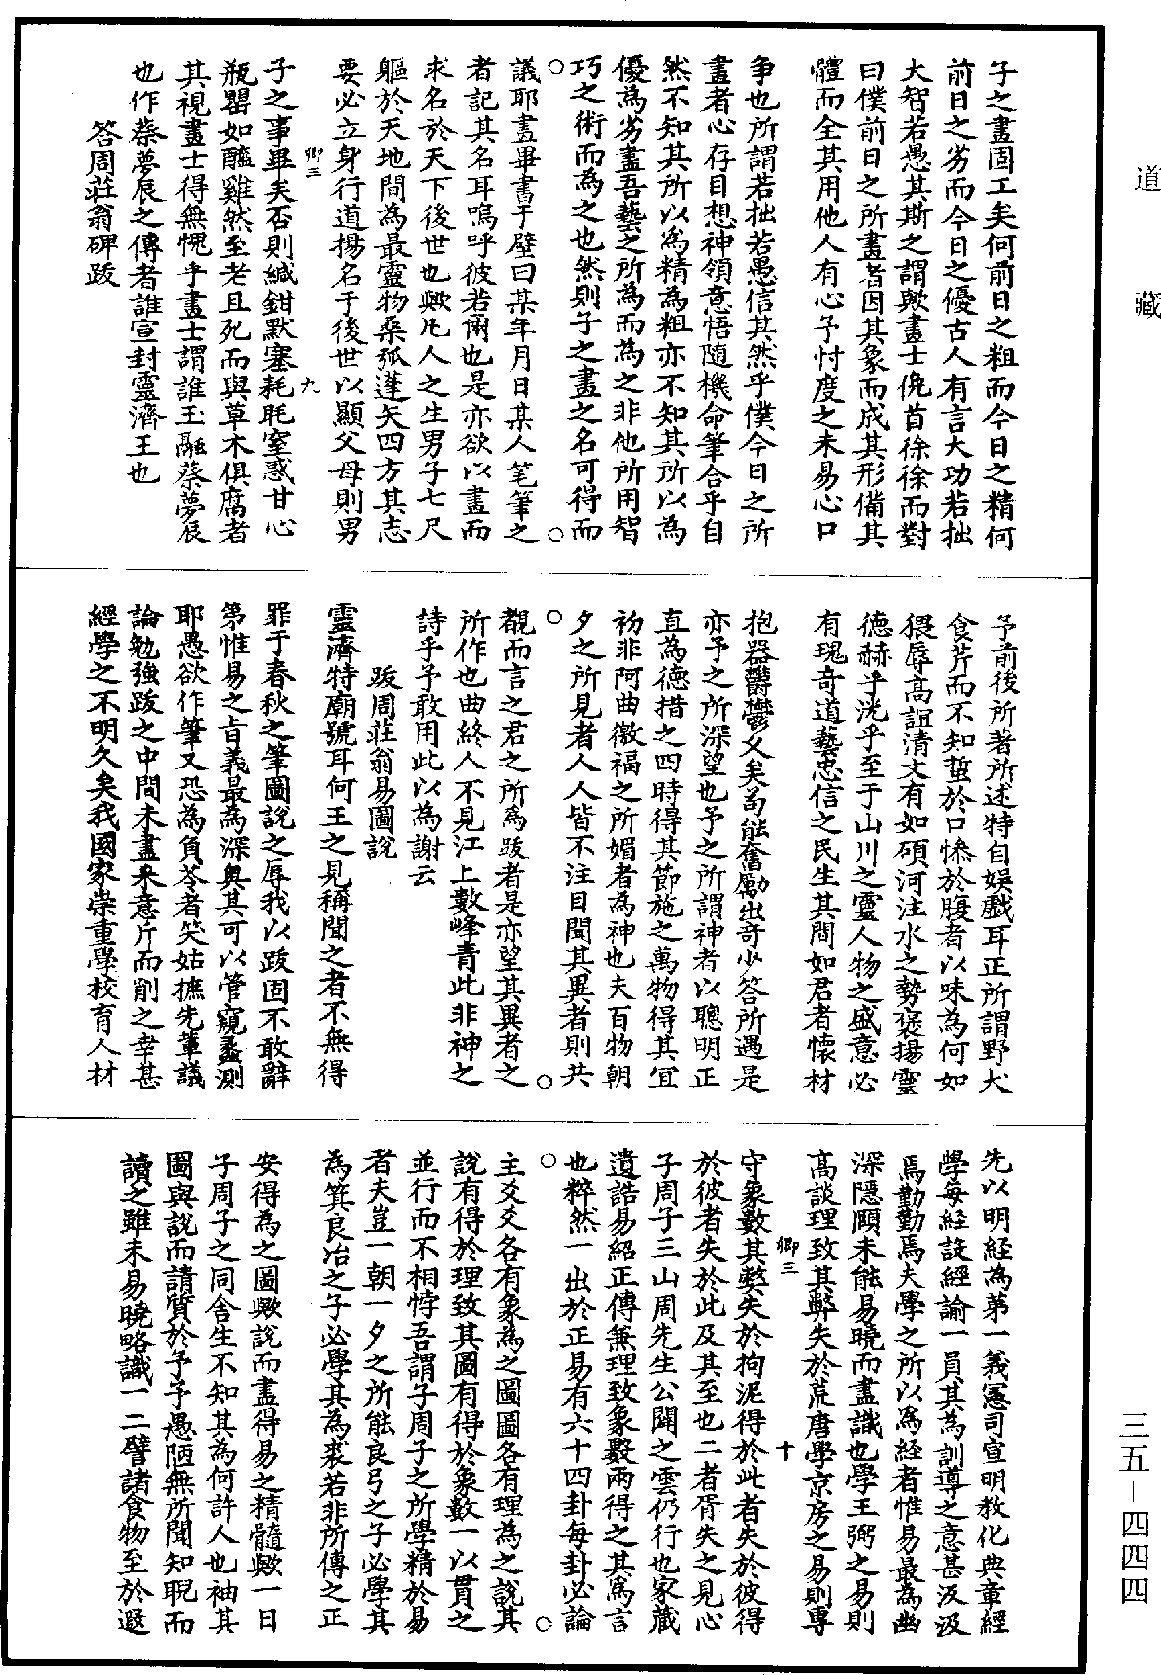 道藏
子之畫固工矣何前日之粗而今日之精何
前日之劣而今日之優古人有言大功若拙
大智若愚其斯之謂歟畫士俛首徐徐而對
曰僕前日之所畫者因其象而成其形備其
體而全其用他人有心予忖度之未易心口
爭也所謂若拙若愚信其然乎僕今日之所
畫者心存目想神領意悟隨機命筆合乎自
然不知其所以為精為粗亦不知其所以為
優為劣盡吾藝之所為而為之非他所用智
巧之術而為之也然則子之畫之名可得而
議耶畫畢書于壁曰某年月日某人笔筆之
者記其名耳嗚呼彼若爾也是亦欲以畫而
求名於天下後世也歟凡人之生男子七尺
軀於天地間為最靈物桑弧蓬矢四方其志
要必立身行道揚名于後世以顯父母則男
卿三 九
子之事畢矣否則緘鉗默塞耗眊窒惑甘心
瓶罌如醯雞然至老且死而與草木俱腐者
其視畫士得無愧乎畫士謂誰王融蔡夢辰
也作蔡夢辰之傳者誰宣封靈濟王也
答周莊翁碑跋
予前後所著所述特自娛戲耳正所謂野犬
食芹而不知蜇於口慘於腹者以味為何如
猥辱高誼清丈有如碩河注水之勢褒揚靈
德赫乎洸乎至于山川之靈人物之盛意必
有瑰奇道藝忠信之民生其間如君者懷材
抱器鬱鬱久矣苟能奮勵出奇少答所遇是
亦予之所深望也予之所謂神者以聰明正
直為德措之四時得其節施之萬物得其宜
初非阿曲徼福之所媚者為神也夫百物朝
夕之所見者人人皆不注目聞其異者則共
觀而言之君之所為跋者是亦望其異者之
所作也曲終人不見江上數峰青此非神之
詩乎予敢用此以為謝云
跋周莊翁易圖說
靈濟特廟號耳何王之見稱聞之者不無得
罪于春秋之筆圖說之辱我以跋固不敢辭
第惟易之旨義最為深奧其可以管窺蠡測
耶愚欲作筆又恐為負苓者笑姑摭先輩議
論勉強跋之中間未盡來意斤而削之幸甚
經學之不明久矣我國家崇重學校育人材
先以明經為第一義憲司宣明教化典章經
學每經設經諭一員其為訓導之意甚汲汲
焉勤勤焉夫學之所以為經者惟易最為幽
深隱頤未能易曉而盡識也學王弼之易則
高談理致其弊失於荒唐學京房之易則專
卿三 十
守象數其弊失於拘泥得於此者失於彼得
於彼者失於此及其至也二者胥失之見心
子周子三山周先生公闢之雲仍行也家藏
遺誥易紹正傳兼理致象數兩得之其為言
也粹然一出於正易有六十四卦每卦必論
主爻爻各有象為之圖圖各有理為之說其
說有得於理致其圖有得於象數一以貫之
並行而不相悖吾謂子周子之所學精於易
者夫豈一朝一夕之所能良弓之子必學其
為箕良冶之子必學其為裘若非所傳之正
安得為之圖歟說而盡得易之精髓歟一日
子周子之同舍生不知其為何許人也袖其
圖與說而請質於予予愚陋無所聞知聣而
讀之雖未易曉略識一二譬諸食物至於遐
三五－四四四